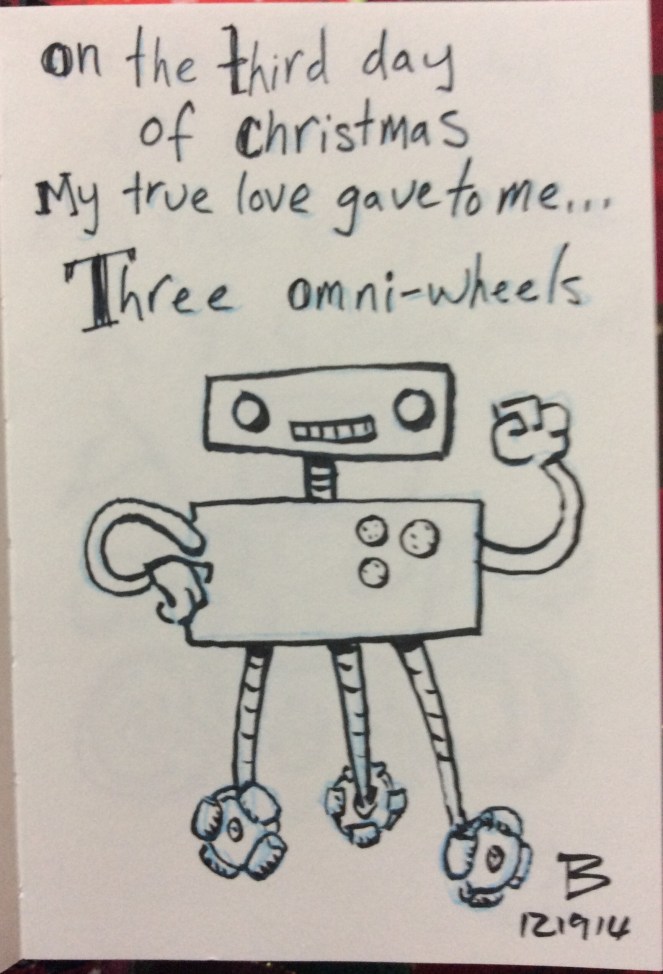 on the third day
of christmas
My true love gave to me...
Three omni-wheels
B
121914